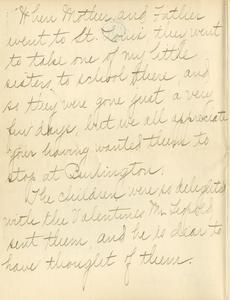 When Mother and Father
went to St. Louis they went
to take one of my little
sisters to school there, and
so they were gone just a very
few days, but we all appreciate
your having wanted them to
stop at Burlington.
The children were so delighted
with the Valentines Mr. Leopold
sent them, and he is dear to
have thought of them.